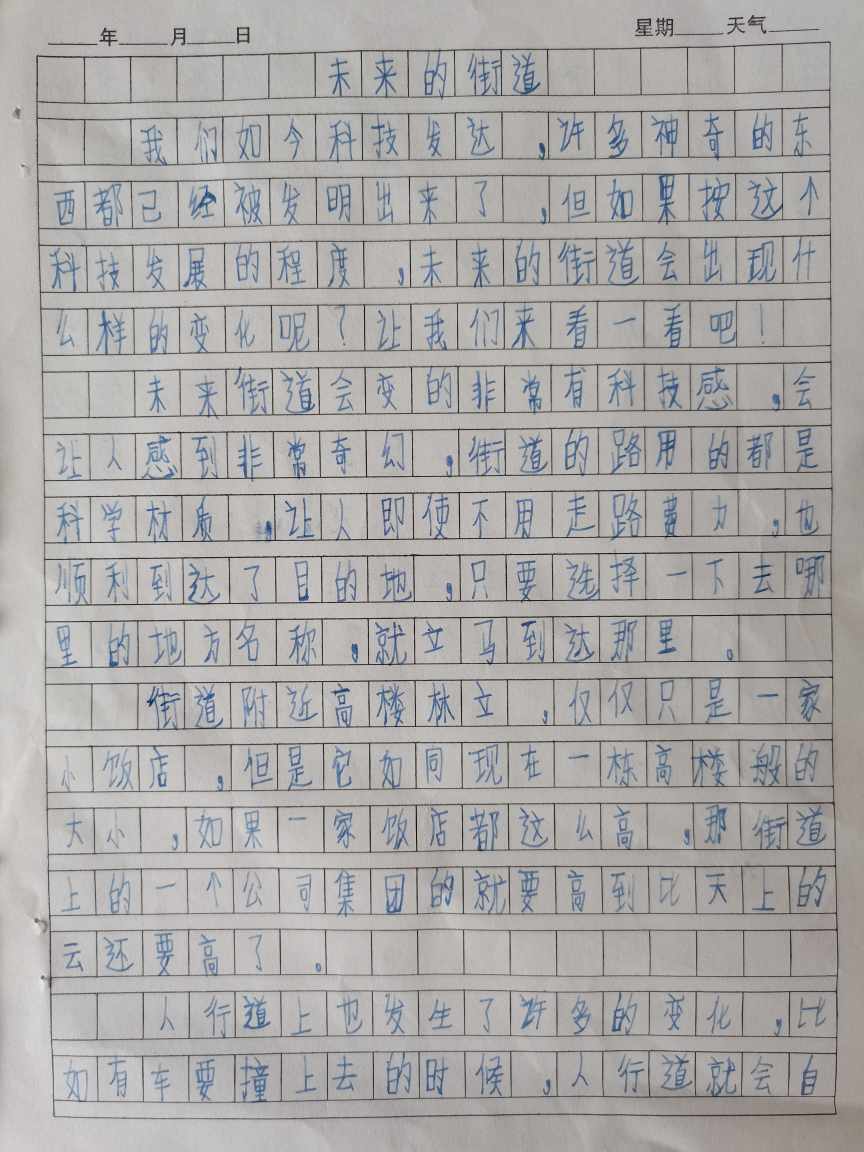 ____年____月____日 星期____天气____
未来的街道
我们如今科技发达,许多神奇的东
西都已经被发明出来了,但如果按这个
科技发展的程度,未来的街道会出现什
么样的变化呢?让我们来看一看吧!
未来街道会变的非常有科技感,会
让人感到非常奇幻,街道的路用的都是
科学材质,让人即使不用走路费力,也
顺利到达了目的地,只要选择一下去哪
里的地方名称,就立马到达那里。
街道附近高楼林立,仅仅只是一家
小饭店,但是它如同现在一栋高楼般的
大小,如果一家饭店都这么高,那街道
上的一个公司集团的就要高到比天上的
云还要高了。
人行道上也发生了许多的变化,比
如有车要撞上去的时候,人行道就会自